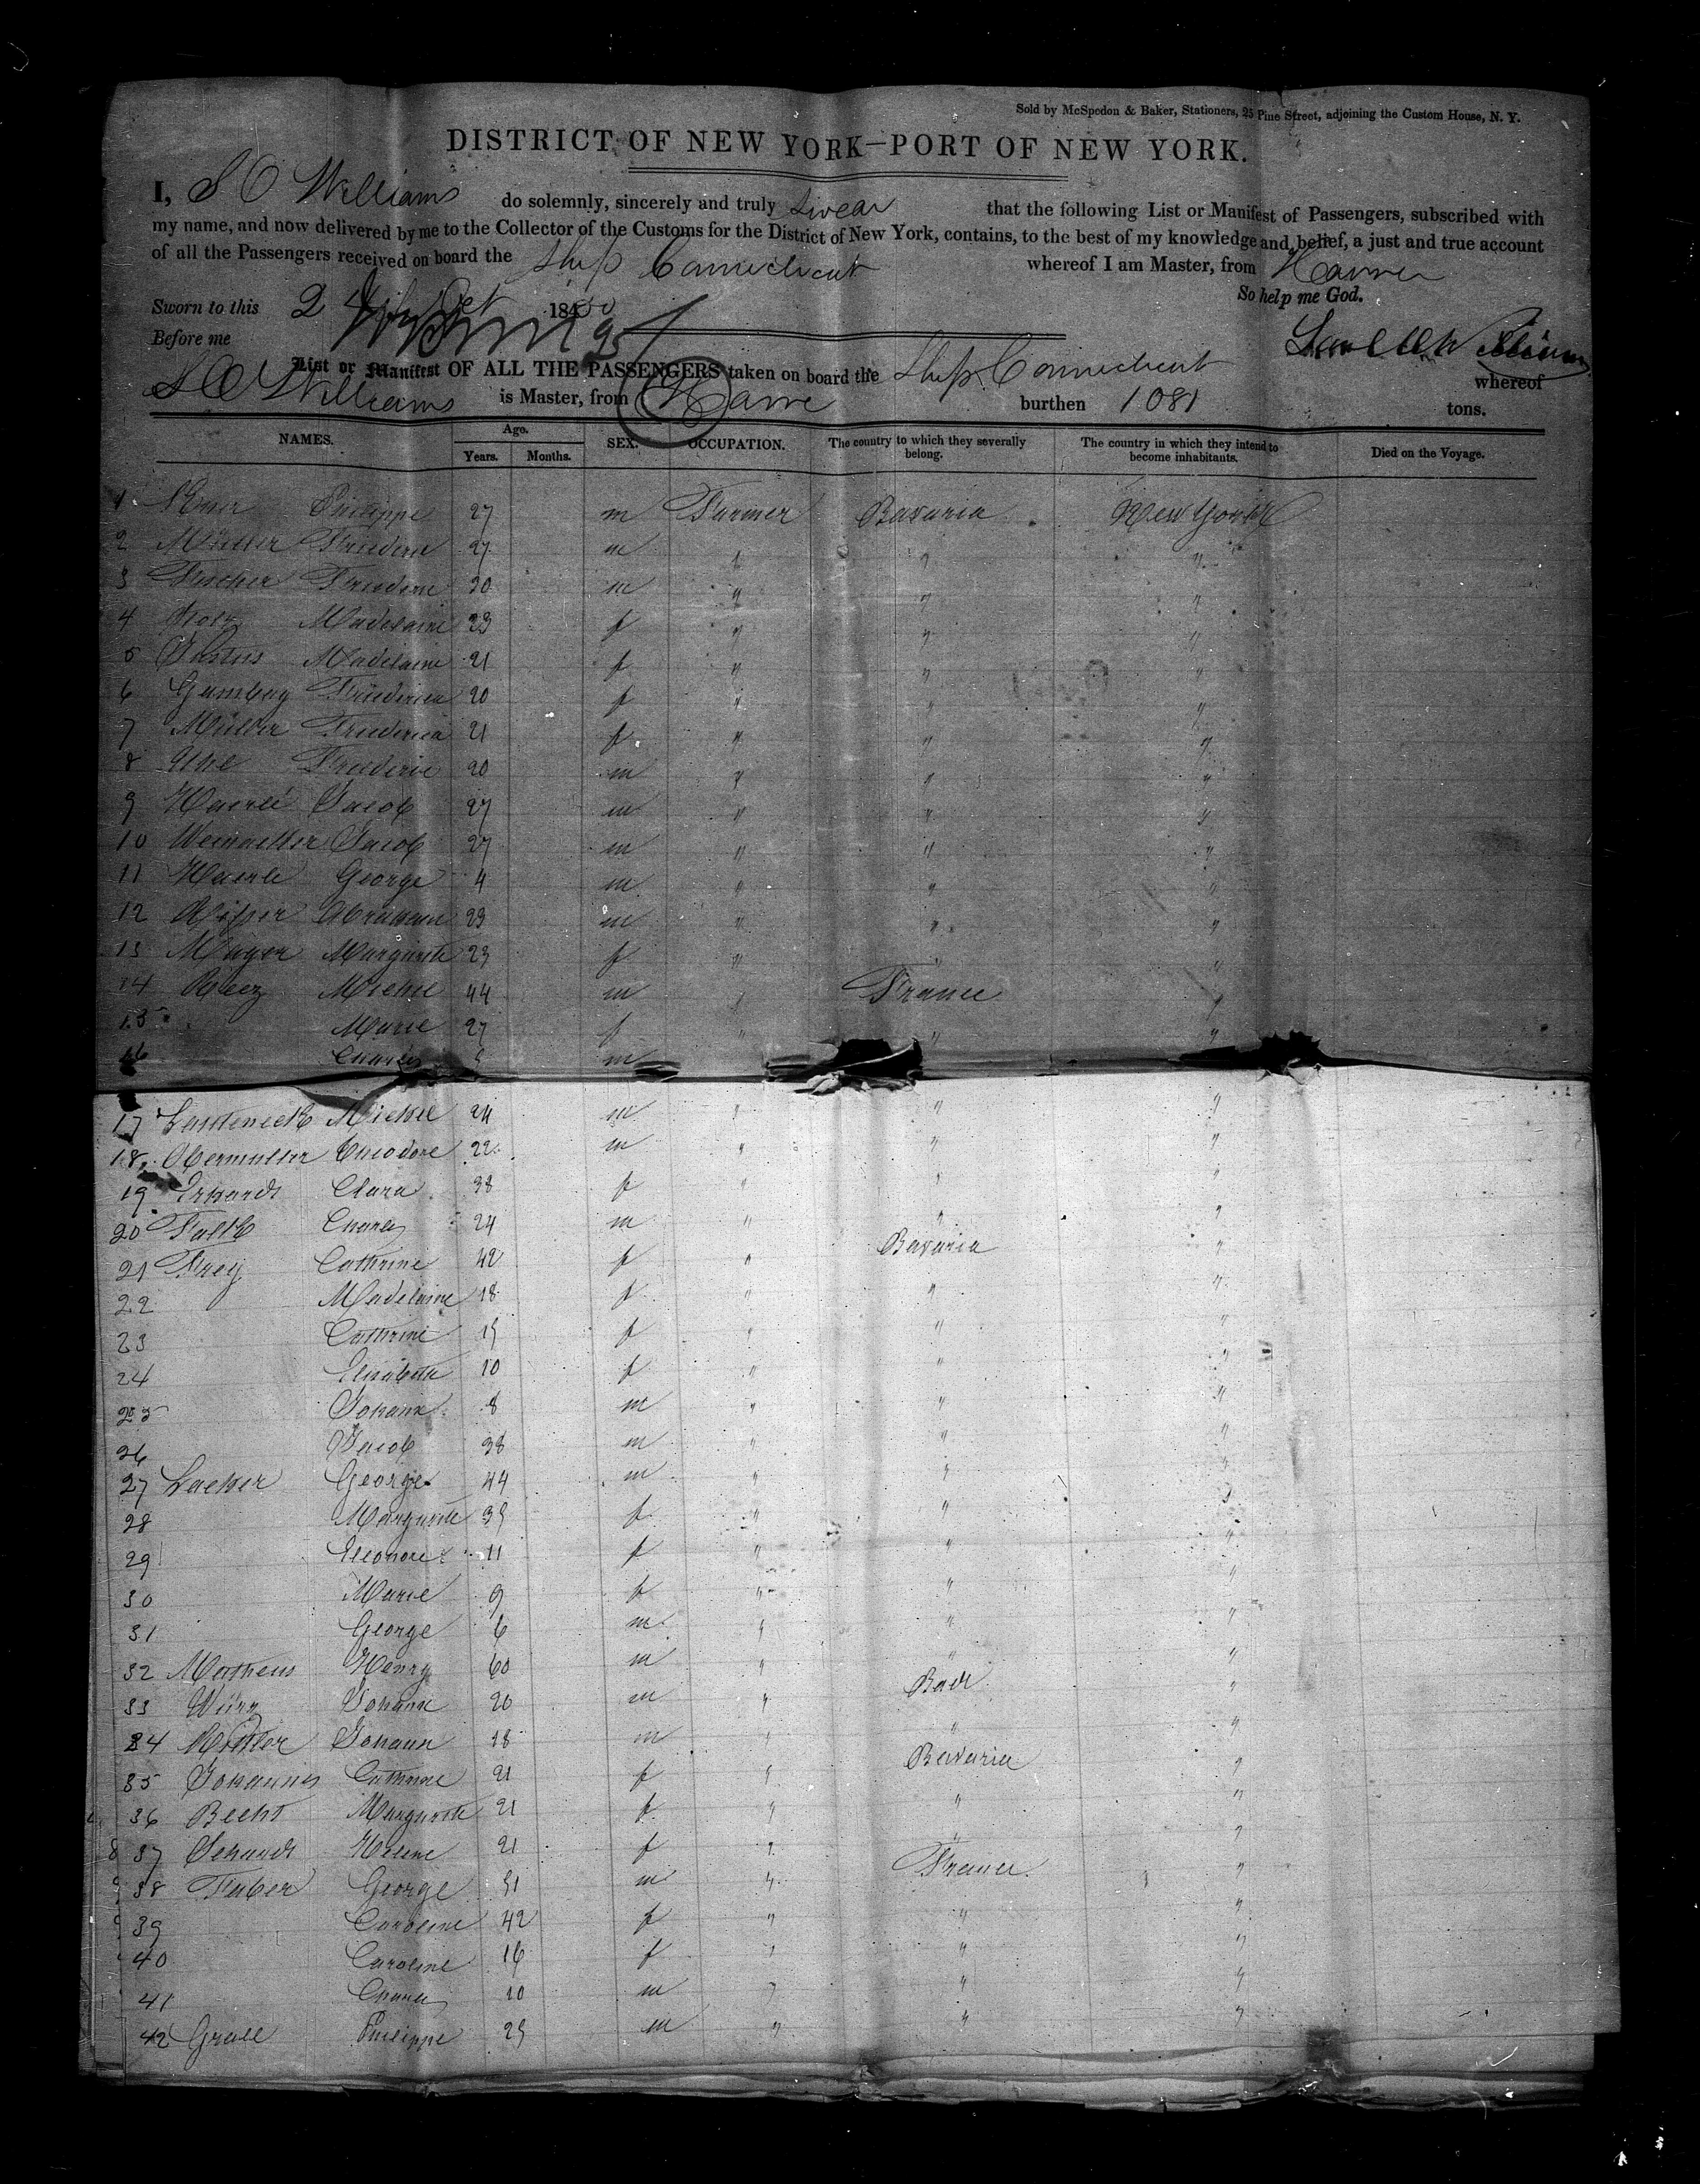 Sold by McSpedon & Baker, Stationers, 25 Pine Street, adjoining the Custom House, N. Y.
DISTRICT OF NEW YORK—PORT OF NEW YORK.
I, S C Williams do solemnly, sincerely and truly swear that the following List or Manifest of Passengers, subscribed with
my name, and now delivered by me to the Collector of the Customs for the District of New York, contains, to the best of my knowledge and belief, a just and true account
of all the Passengers received on board the Ship Connecticut whereof I am Master, from Havre
So help me God.
Sworn to this 2 Oct 1850
Before me
List or Manifest OF ALL THE PASSENGERS taken on board the Ship Connecticut whereof
S C Williams is Master, from Havre burthen 1081 tons.
NAMES. Age. Years. Months. SEX. OCCUPATION. The country to which they severally belong. The country in which they intend to become inhabitants. Died on the Voyage.
1 Philippe 27 m Farmer Bavaria New York
2 Müller 27 m " " "
3 Fischer 20 m " " "
4 Madelaine 23 f " " "
5 Madelaine 21 f " " "
6 Friederica 20 f " " "
7 Müller Friederica 21 f " " "
8 20 m " " "
9 Haerle Jacob 27 m " " "
10 Jacob 27 m " " "
11 Haerle George 4 m " " "
12 Abraham 23 m " " "
13 Mayer Margarete 23 f " " "
14 Michel 44 m " France "
15 Marie 27 f " " "
16 Charles m
17 Michel 24 m " " "
18 Obermuller Theodore 22 m " " "
19 Erhardt Clara 38 f " " "
20 Falk Charles 24 m " " "
21 Frey Cathrine 42 f " Bavaria "
22 Madelaine 18 f " " "
23 Cathrine 15 f " " "
24 Elisabeth 10 f " " "
25 Johann 8 m " " "
26 Jacob 38 m " " "
27 Lacher George 44 m " " "
28 Margarete 35 f " " "
29 Eleonore 11 f " " "
30 Marie 9 f " " "
31 George 6 m " " "
32 Matheus Henry 60 m " " "
33 Würz Johann 20 m " Bade "
34 Johann 18 m " " "
35 Johannes Cathrine 21 f " Bavaria "
36 Becht Margarete 21 f " " "
37 Schandt Helene 21 f " " "
38 Faber George 51 m " France "
39 Caroline 42 f " " "
40 Caroline 16 f " " "
41 Charles 10 m " " "
42 Philippe 25 m " " "